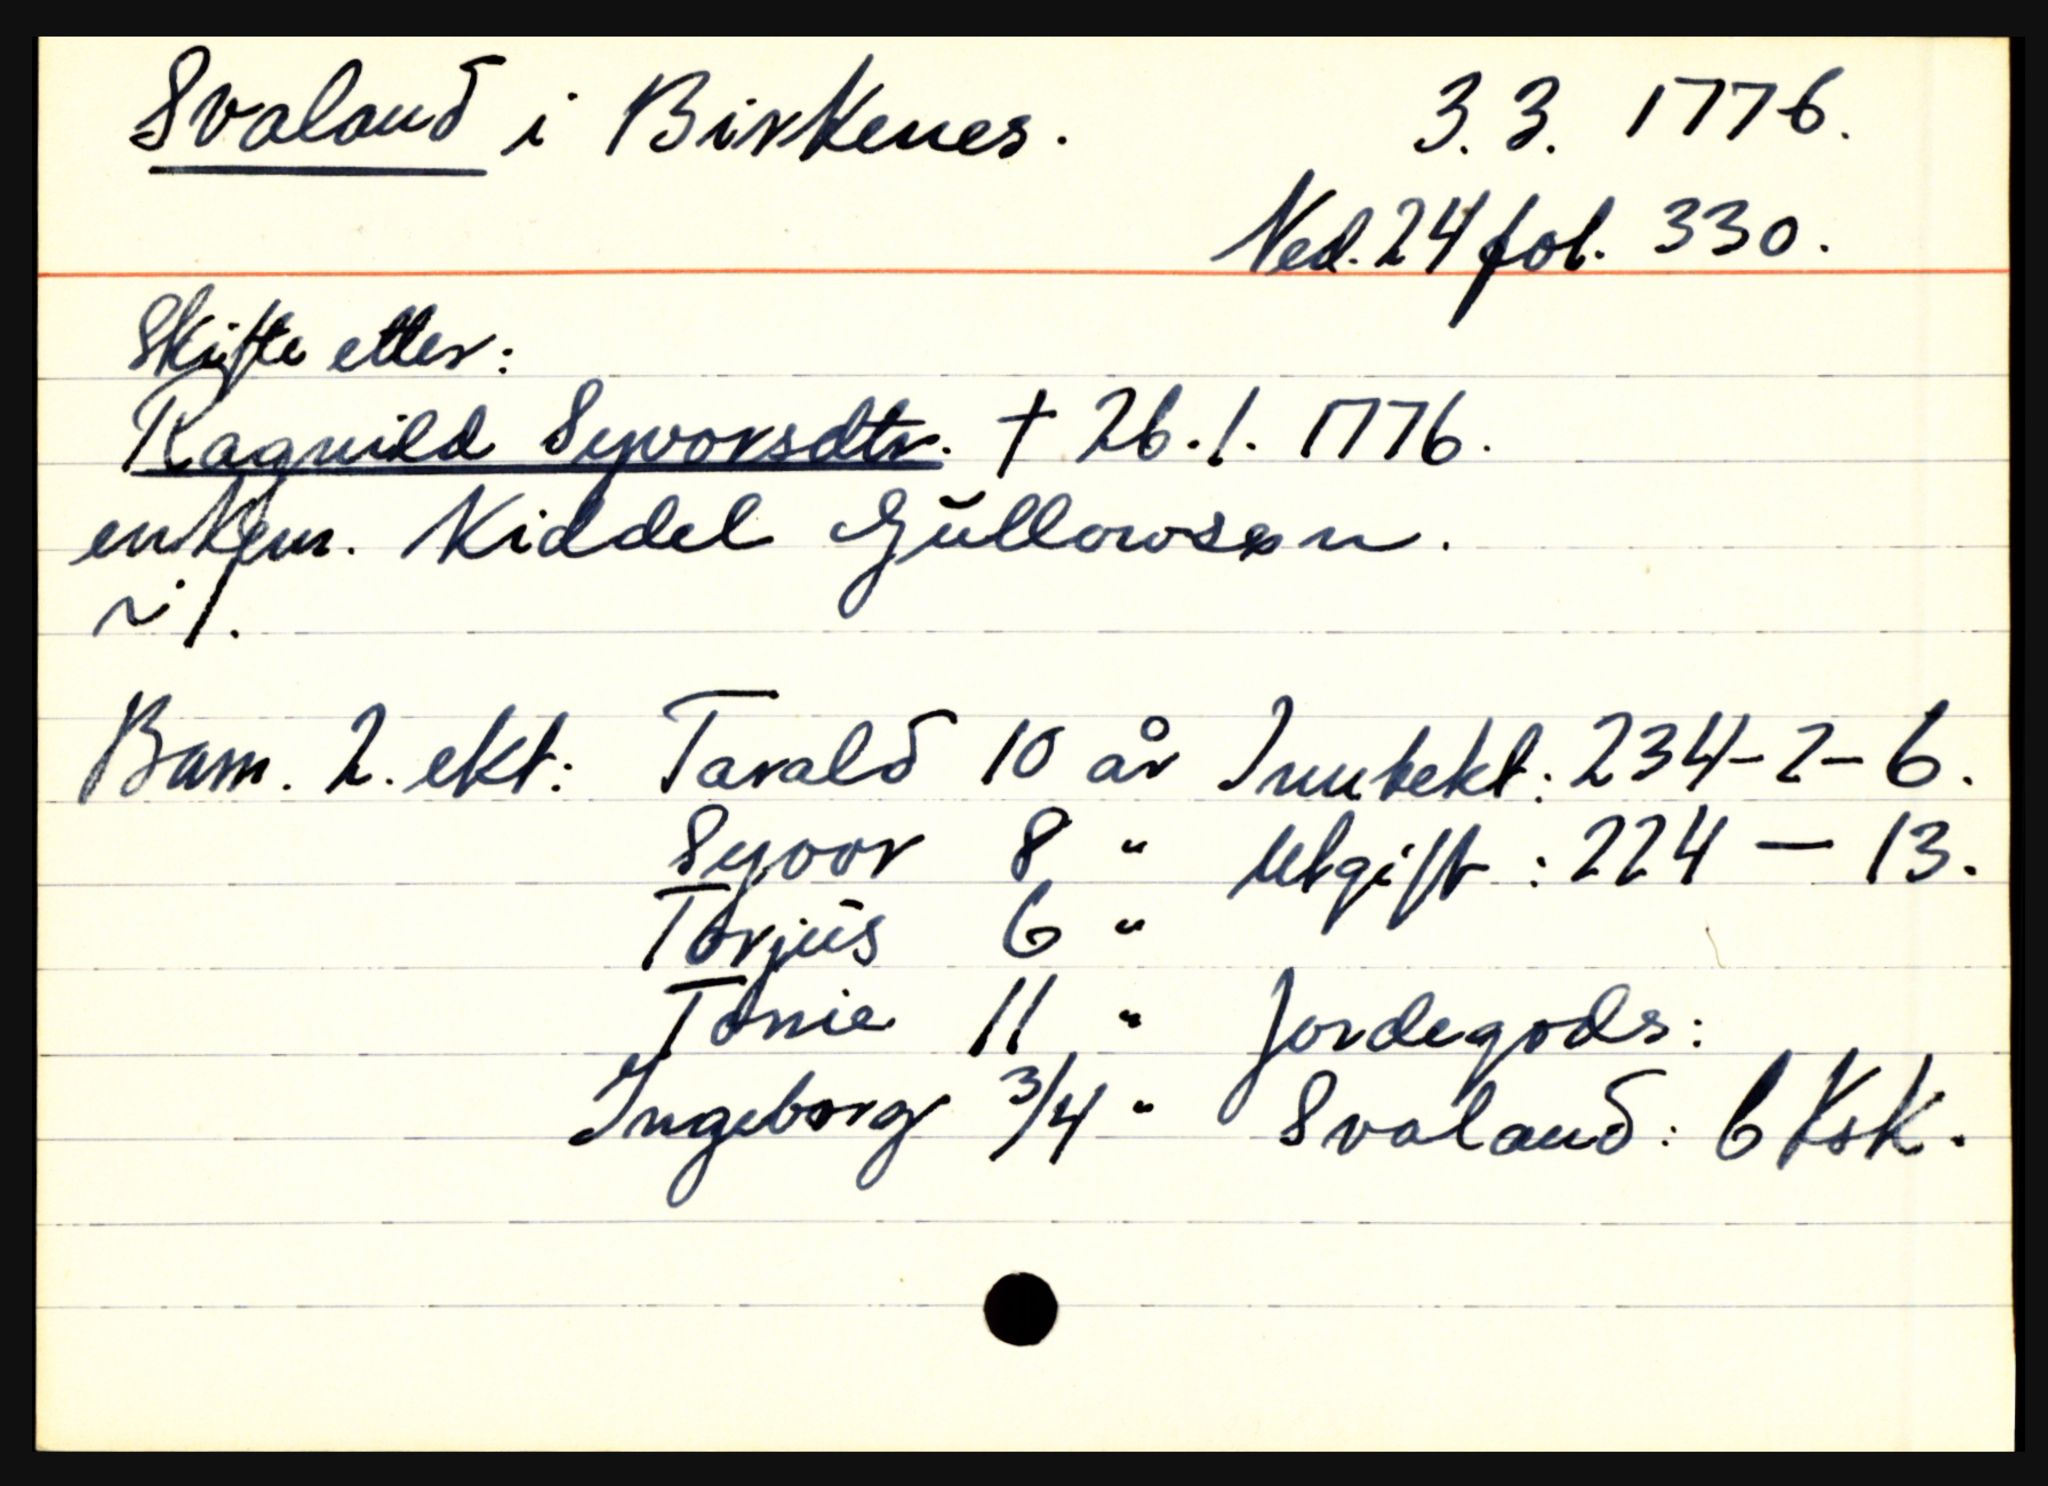 Svaland i Birkenes. 3.3. 1776.
Ned. 24 fol. 330.
Skifte etter:
Ragnild Syvorsdtr. † 26.1. 1776.
enkem. Kiddel Gŭllowsøn.
~ 1.
Barn. 2. ekt: Tarald 10 år Inntekt: 234-2-6.
Syvor 8 " Utgift: 224 — 13.
Torjŭs 6 "
Tonie 11 " Jordegods:
Ingeborg 3/4 " Svaland: 6 Ksk.